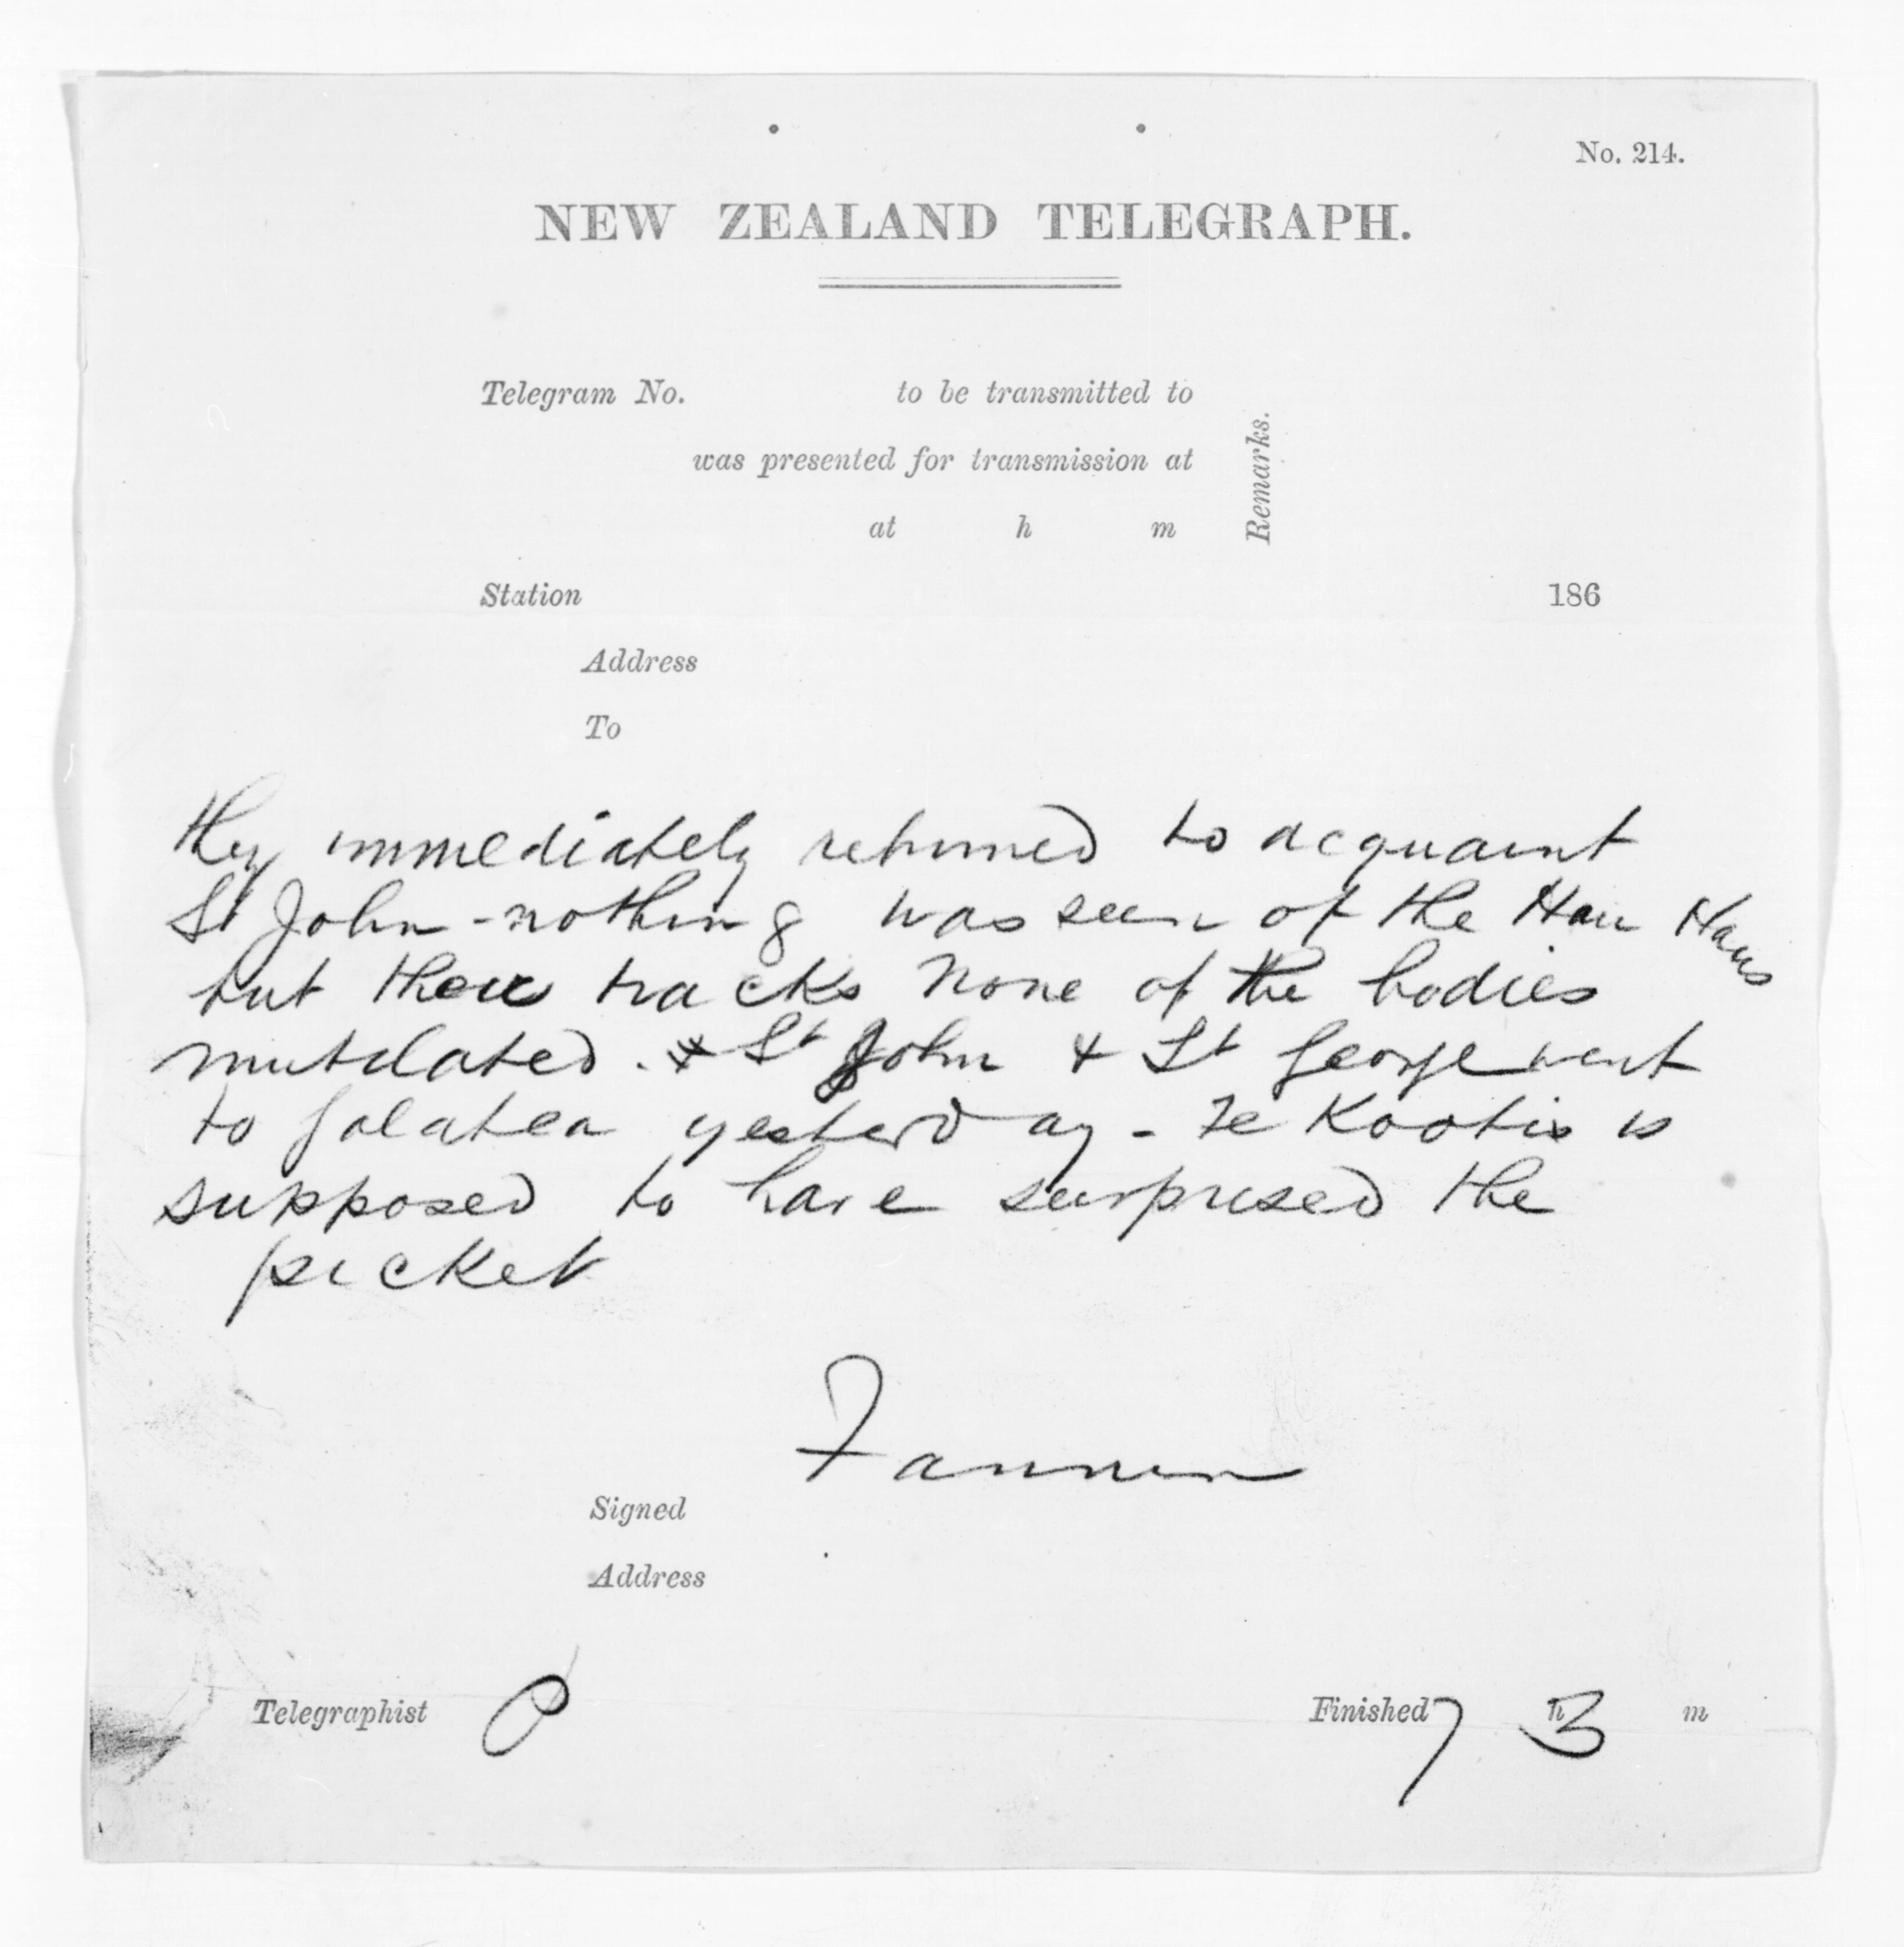 No. 214.
NEW ZEALAND TELEGRAPH.
Telegram No. to be transmitted to
was presented for transmission at
at h m
Remarks.
Station 186
Address
To
they immediately returned to acquaint
St John - nothing was seen of the Hau Haus
but their tracks None of the bodies
mutilated. St John & St George went
to Galatea yesterday - Te Kooti is
supposed to have surprised the
picket
Fannin
Signed
Address
Telegraphist
Finished 7 h 3 m